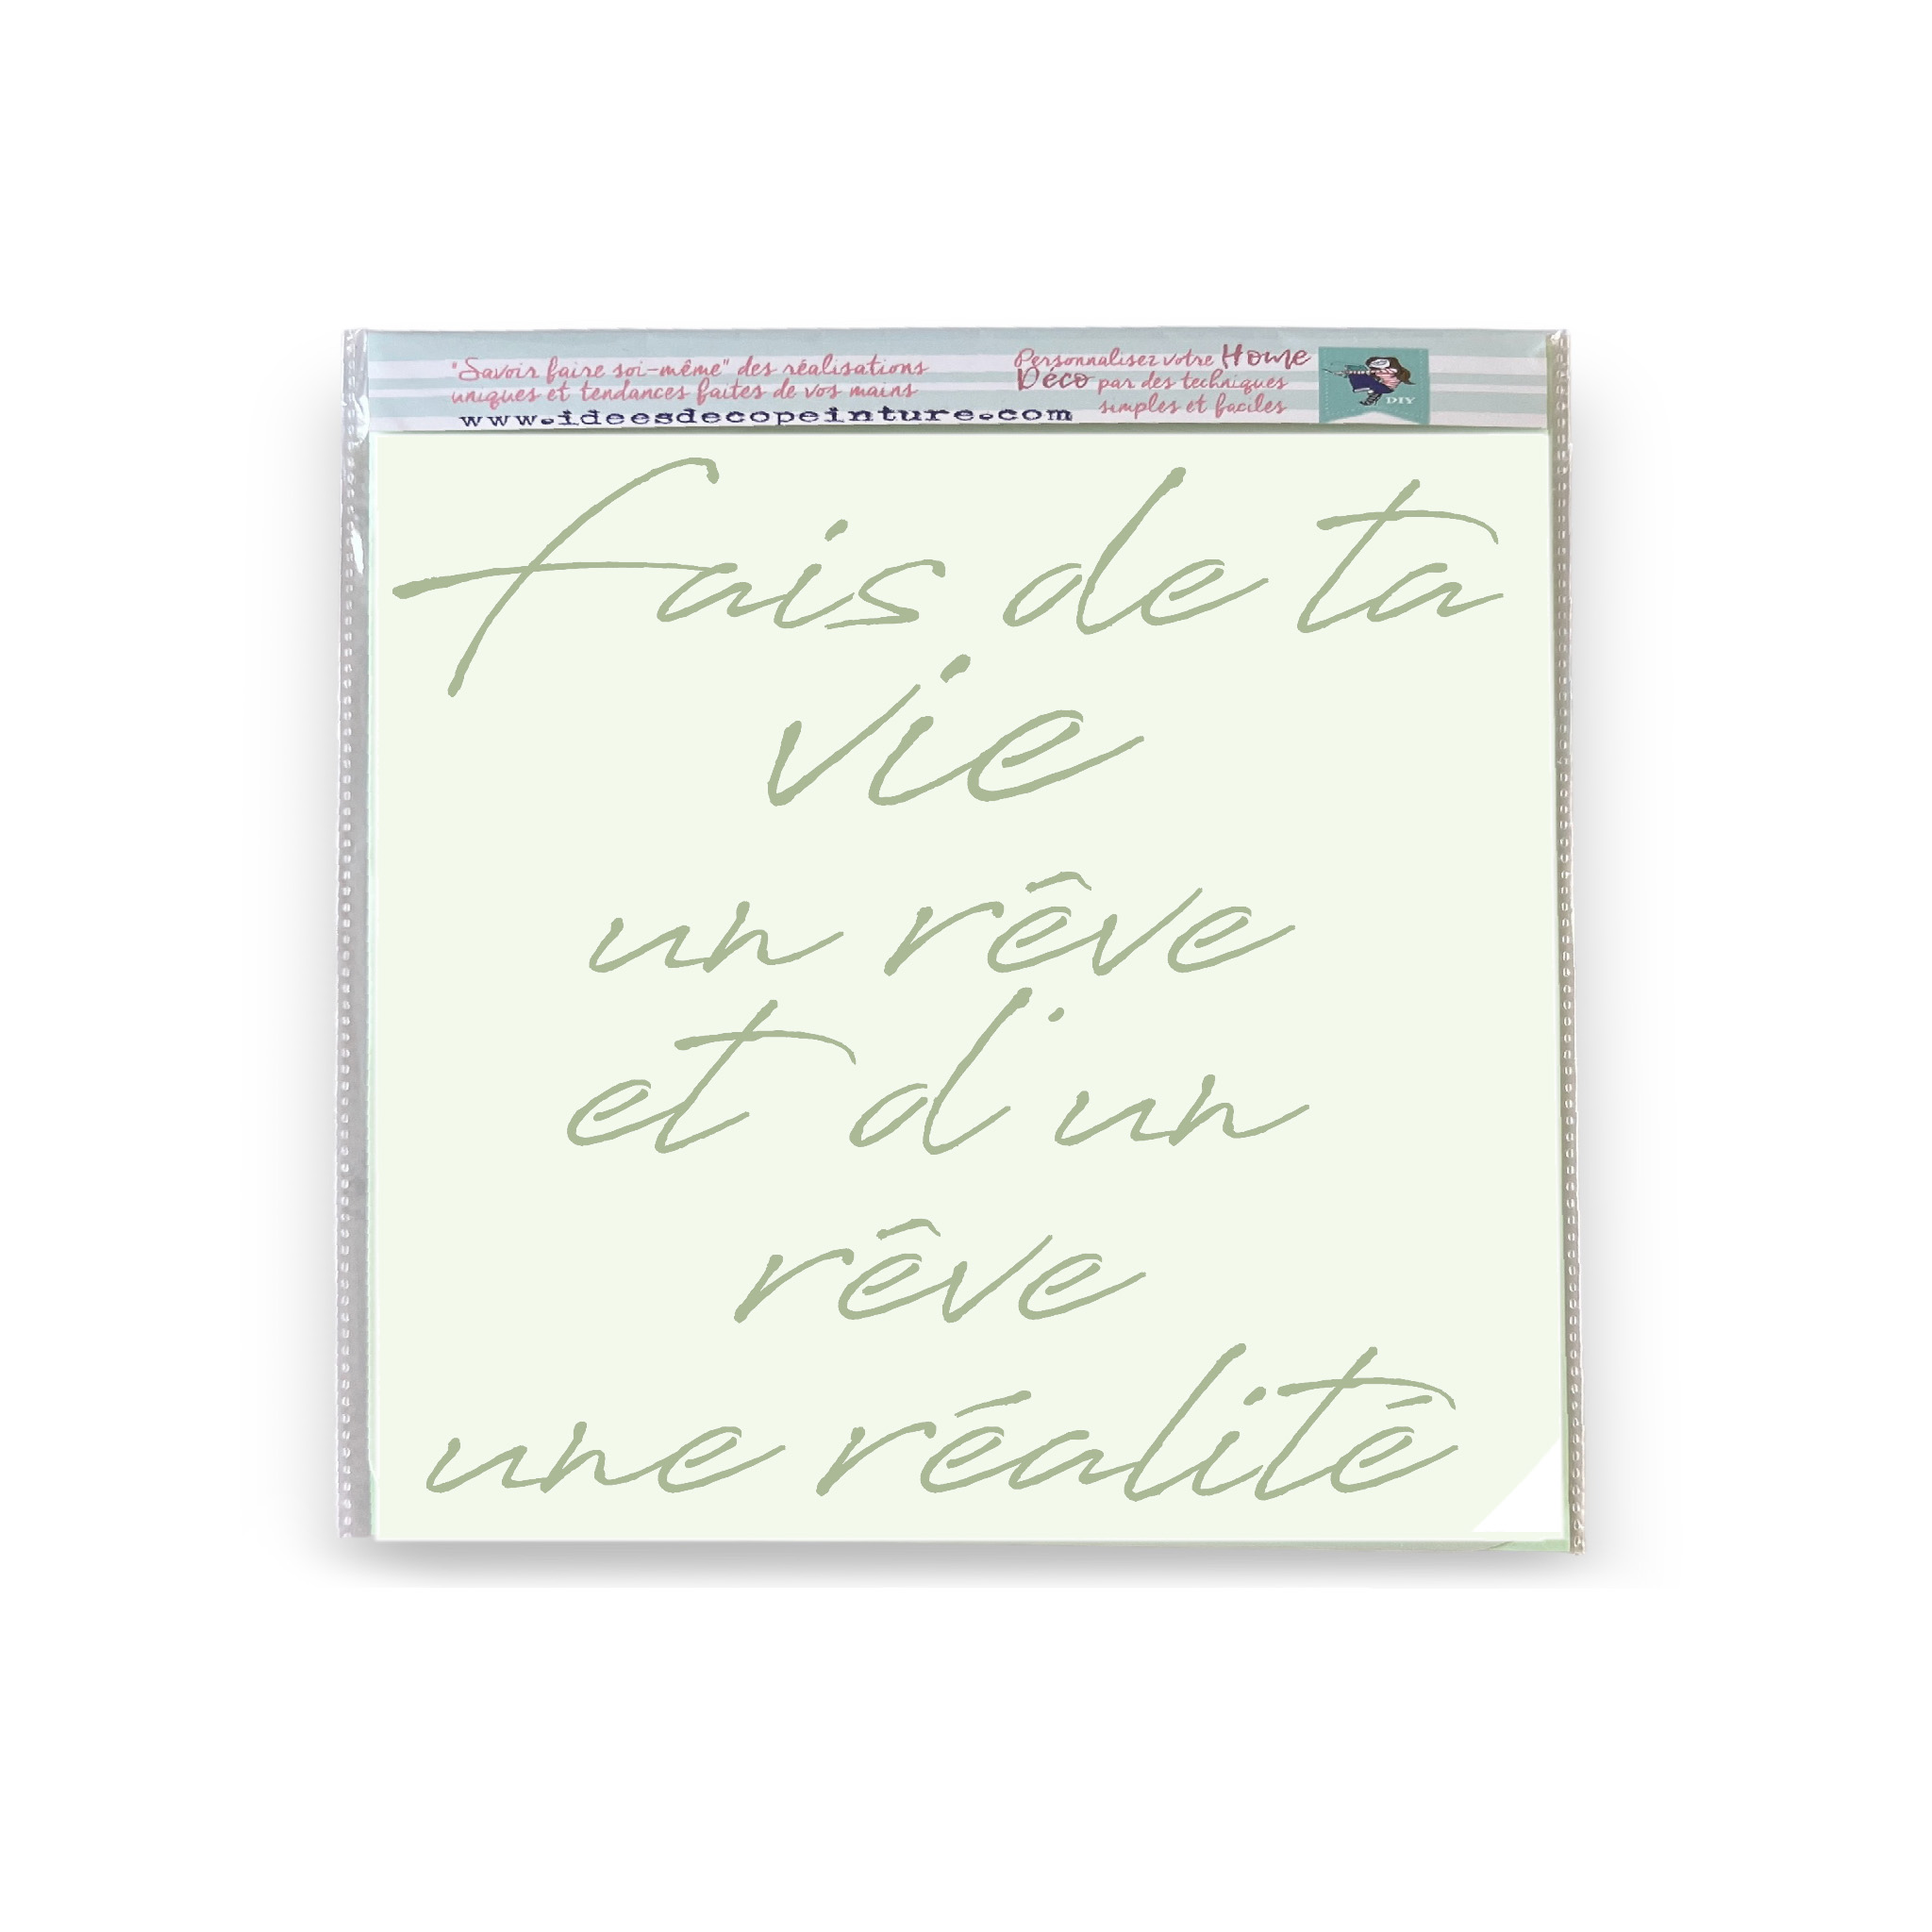 "Savoir faire soi-même" des réalisations
uniques et tendances faites de vos mains
www.ideesdecopeinture.com
Personnalisez votre Home
Déco par des techniques
simples et faciles
DIY
fais de ta
vie
un rêve
et d'un
rêve
une réalité